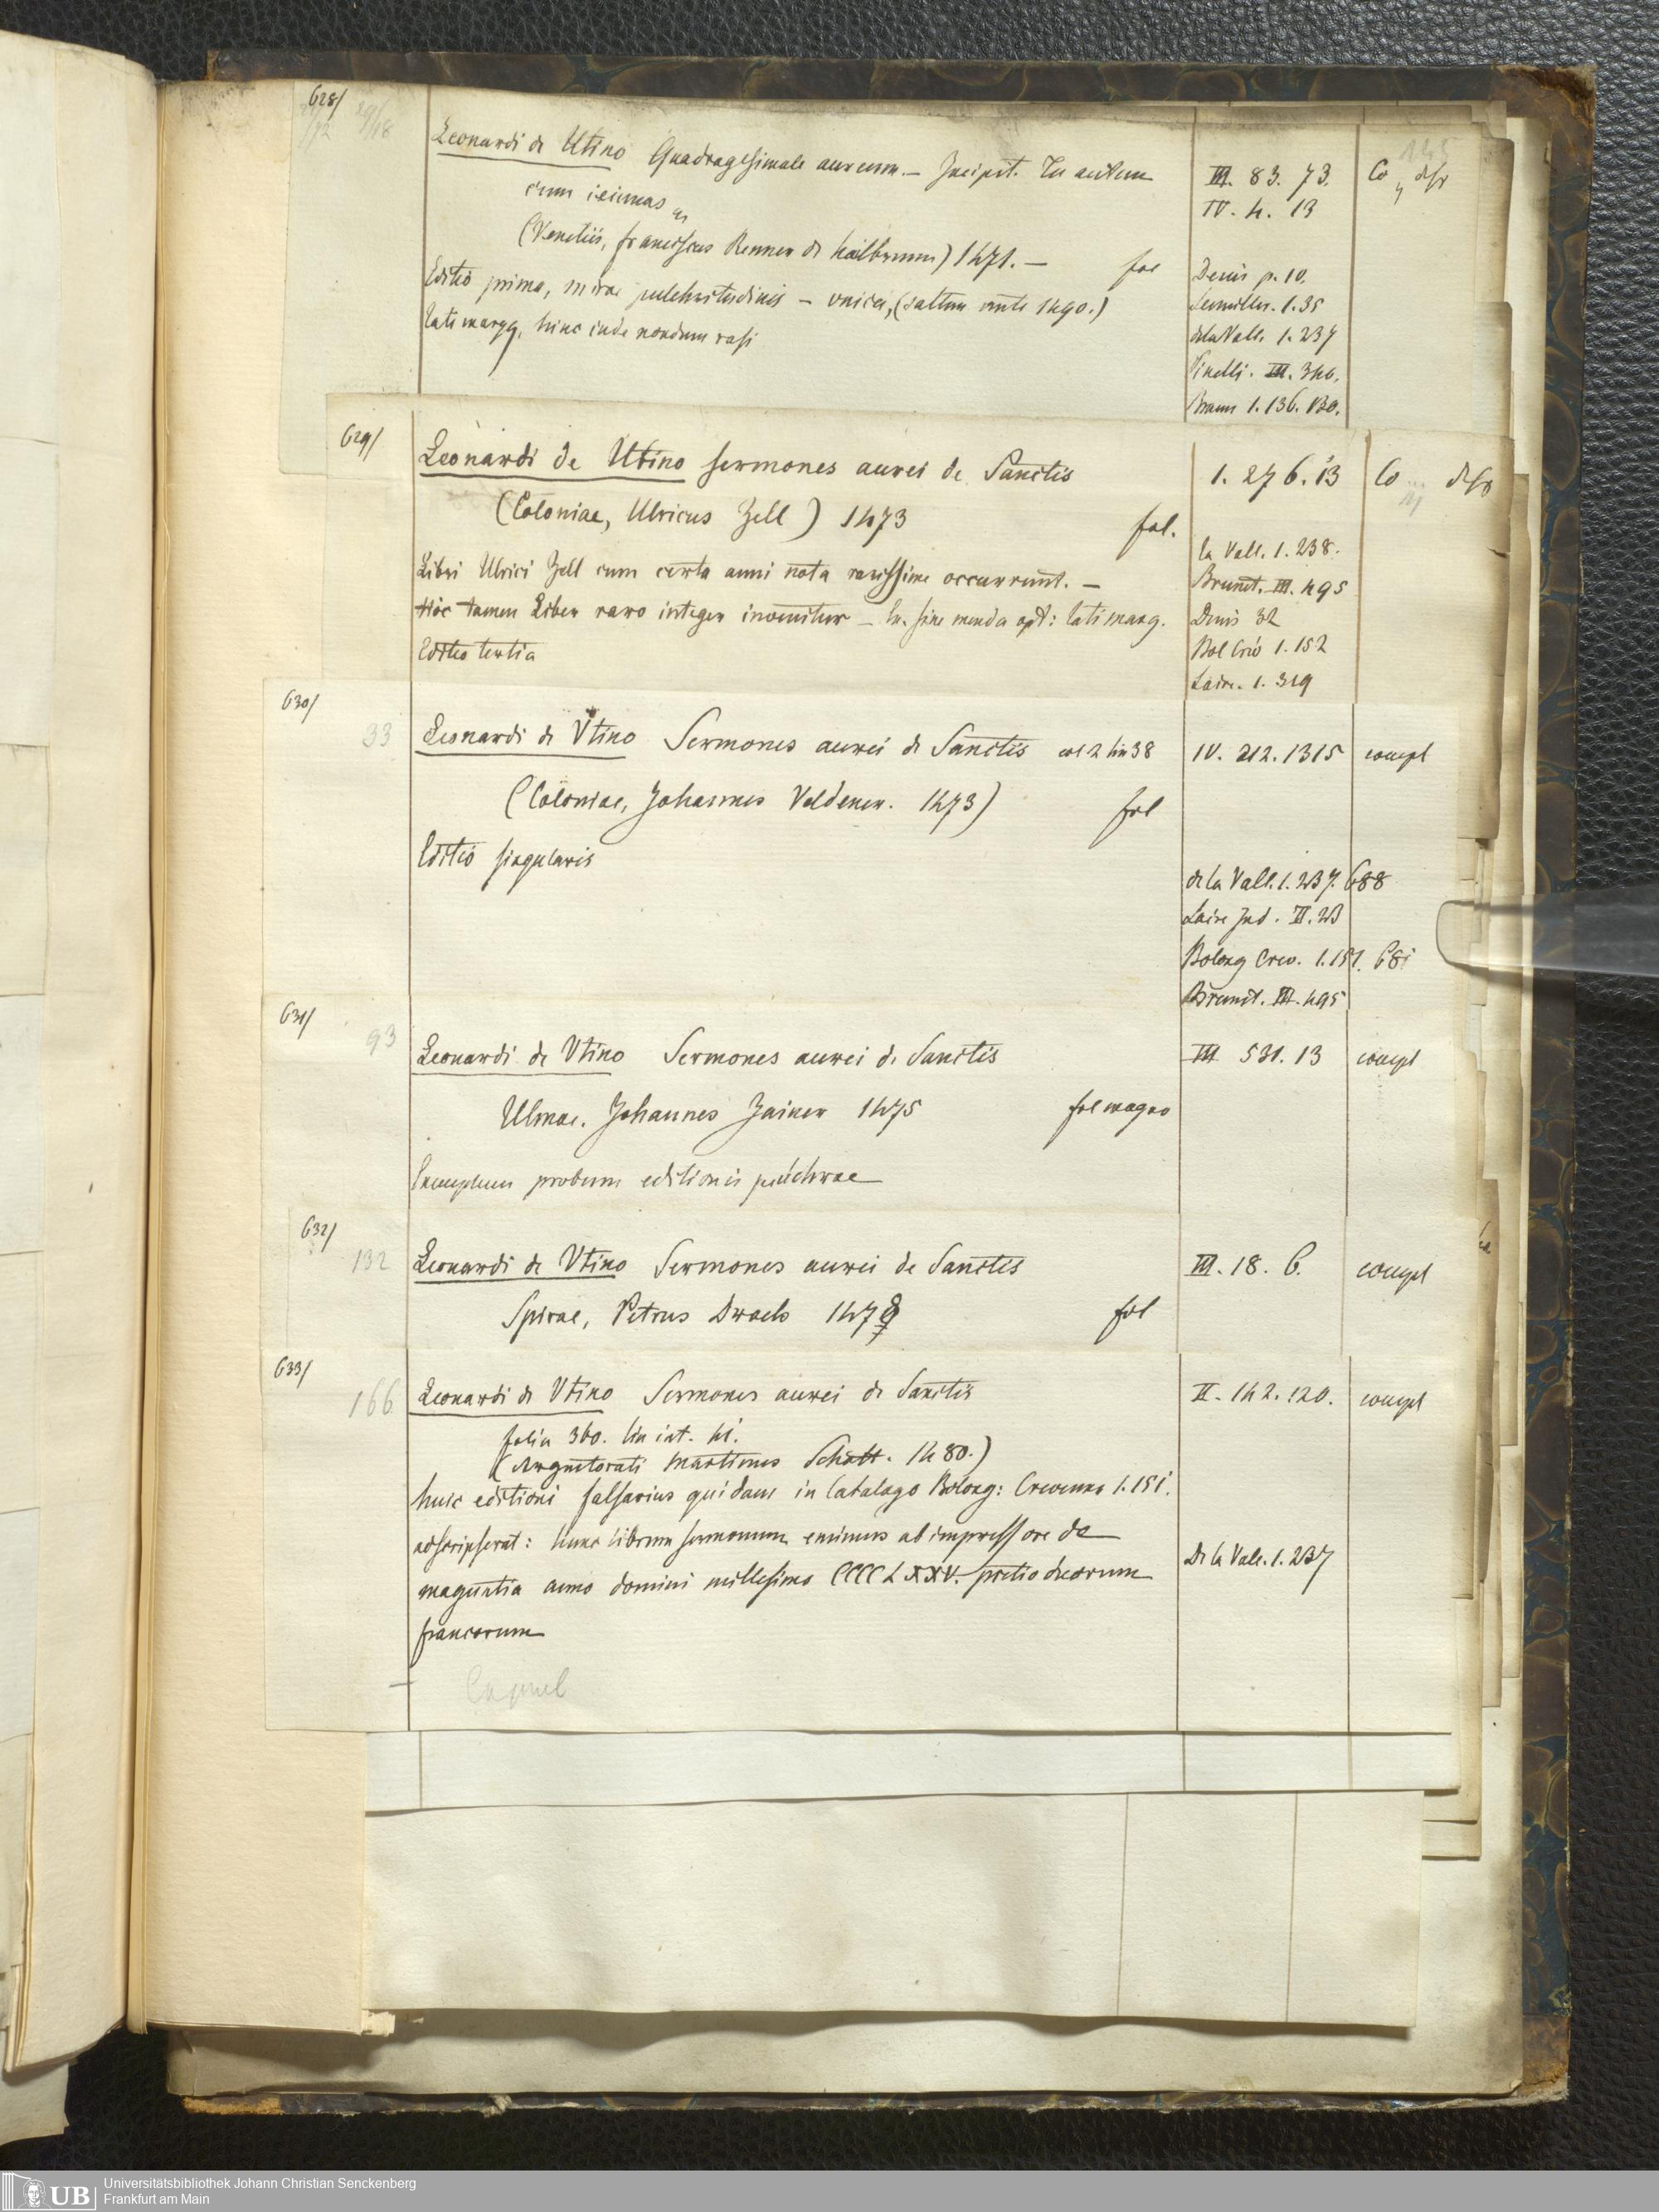 628/
Leonardi de Utino Quadragesimale aureum. – Incipit. Tu autem
cum ieiunas
(Venetiis, franciscus Renner de hailbrunn) 1471. – fol
Editio prima, mirae pulchritudinis – unica, (saltem ante 1490.)
lati margg, hinc inde nondum rasi
III. 83. 73.
IV. 4. 13
Denis p. 10.
Seemiller. 1. 35
de la Vall. 1. 237
Pinelli. III. 346.
Braun 1. 136. 130.
Co
629/
Leonardi de Utino sermones aurei de Sanctis
(Coloniae, Ulricus Zell) 1473 fol.
Libri Ulrici Zell cum certa anni nota rarissime occurrunt. –
Hic tamen Liber raro integer invenitur – Ex. sine menda opt: lati marg.
Editio tertia
1. 276. 13
la Vall. 1. 238.
Brunet. III. 495
Denis 32
Bol Crev 1. 152
Laire. 1. 319
Co
630/
33
Leonardi de Vtino Sermones aurei de Sanctis col 2 lin 38
(Coloniae, Johannes Veldener. 1473) fol
Editio singularis
IV. 212. 1315
compl
de la Vall. 1. 237. 688
Laire Ind. II. 23
Bolong Crev. 1. 151. 681
Brunet. III. 495
631/
93
Leonardi de Vtino Sermones aurei de Sanctis
Ulmae. Johannes Zainer 1475 fol magno
Exemplum probum editionis pulchrae
III 531. 13
compl
632/
132
Leonardi de Vtino Sermones aurei de Sanctis
Spirae, Petrus Drach 1478 fol
III. 18. 6.
compl
633/
166
Leonardi de Vtino Sermones aurei de Sanctis
folia 360. lin int. 41.
(Argntorati Martinus Schott. 1480.)
huic editioni falsarius quidam in Catalogo Bolong: Crevenna 1. 151.
adscripserat: hunc librum sermonum emimus ab impressore de
maguntia anno domini millesimo CCCCLXXV. pretio duorum
francorum
II. 142. 120.
compl
De la Vall. 1. 237
UB
Universitätsbibliothek Johann Christian Senckenberg
Frankfurt am Main